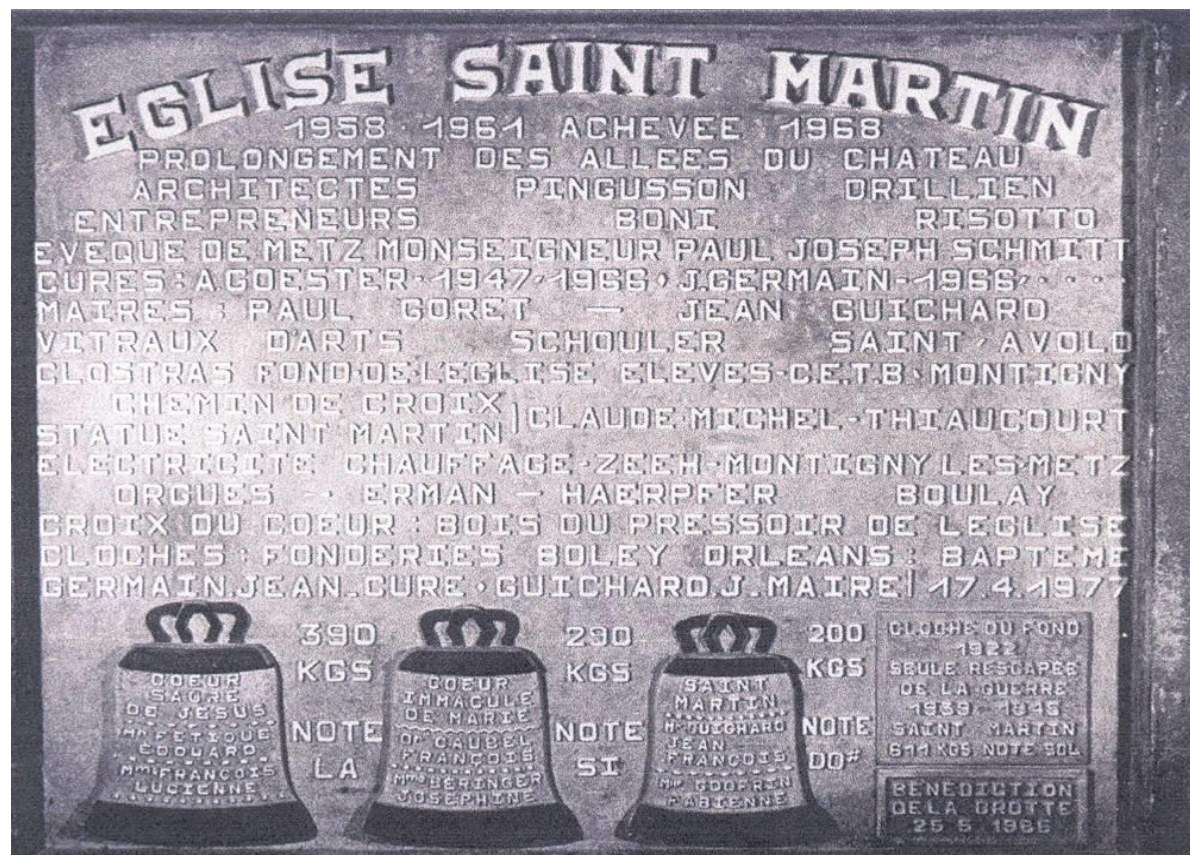 EGLISE SAINT MARTIN
1958 · 1961 ACHEVEE 1968
PROLONGEMENT DES ALLEES DU CHATEAU
ARCHITECTES PINGUSSON DRILLIEN
ENTREPRENEURS BONI RISOTTO
EVEQUE DE METZ MONSEIGNEUR PAUL JOSEPH SCHMITT
CURES : A GOESTER · 1947 · 1966 · J.GERMAIN - 1966 · · · ·
MAIRES : PAUL GORET — JEAN GUICHARD
VITRAUX D'ARTS SCHOULER SAINT · AVOLD
CLOSTRAS FOND·DE·L'EGLISE ELEVES·C.E.T.B·MONTIGNY
CHEMIN DE CROIX
STATUE SAINT MARTIN | CLAUDE·MICHEL-THIAUCOURT
ELECTRICITE CHAUFFAGE-ZEEH-MONTIGNY LES METZ
ORGUES - ERMAN - HAERPFER BOULAY
CROIX DU COEUR : BOIS DU PRESSOIR DE LEGLISE
CLOCHES : FONDERIES BOLEY ORLEANS : BAPTEME
GERMAIN.JEAN.CURE · GUICHARD.J.MAIRE | 17.4.1977
COEUR
SACRE
DE JESUS
Mr FETIQUE
EDOUARD
Mme FRANCOIS
LUCIENNE
390
KGS
NOTE
LA
COEUR
IMMACULE
DE MARIE
Dr CAUBEL
FRANÇOIS
Mme BERINGER
JOSEPHINE
290
KGS
NOTE
SI
SAINT
MARTIN
Mr GUICHARD
JEAN
FRANCOIS
Mlle GODFRIN
FABIENNE
200
KGS
NOTE
DO#
CLOCHE DU FOND
1922
SEULE RESCAPEE
DE LA GUERRE
1939 - 1945
SAINT MARTIN
611 KGS NOTE SOL
BENEDICTION
DE LA GROTTE
25 5 1986